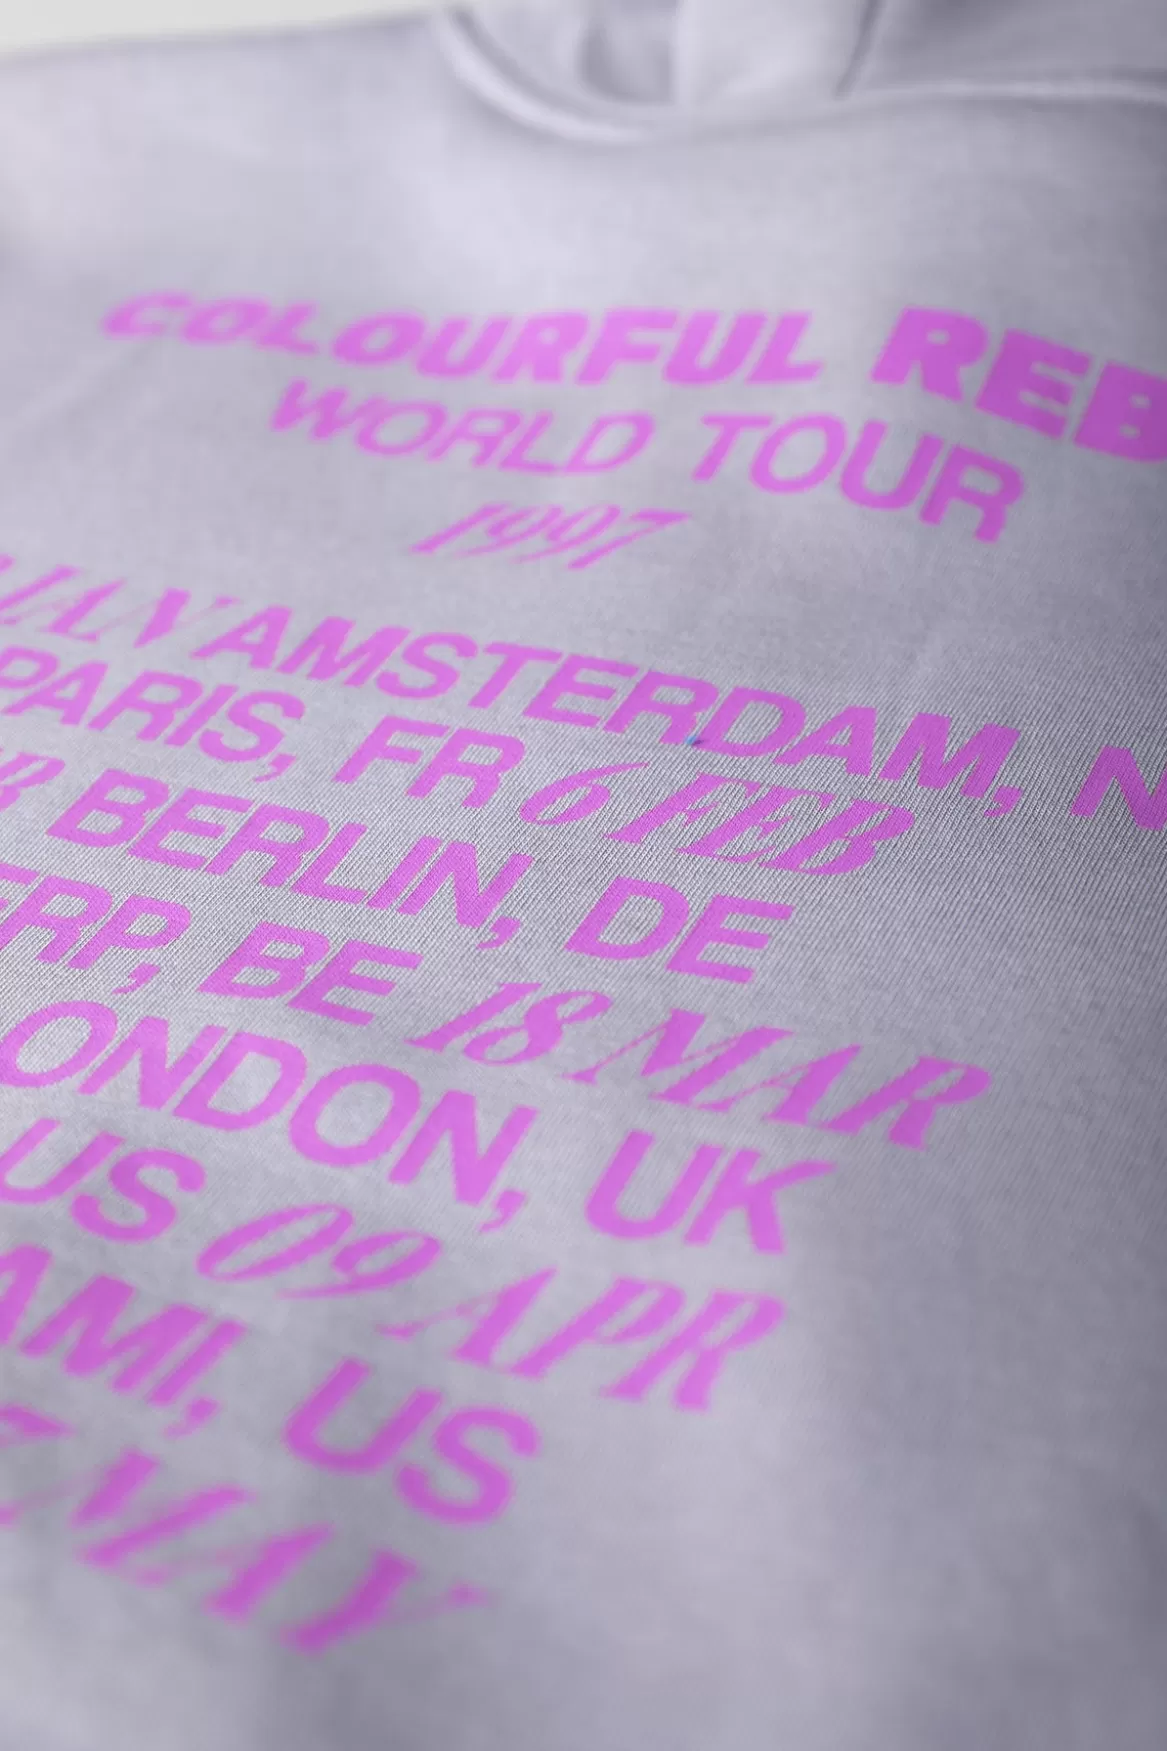 COLOURFUL REB
WORLD TOUR
1997
JAN AMSTERDAM, N
PARIS, FR 6 FEB
BERLIN, DE
ERP, BE 18 MAR
ONDON, UK
US 09 APR
AMI, US
7 MAY